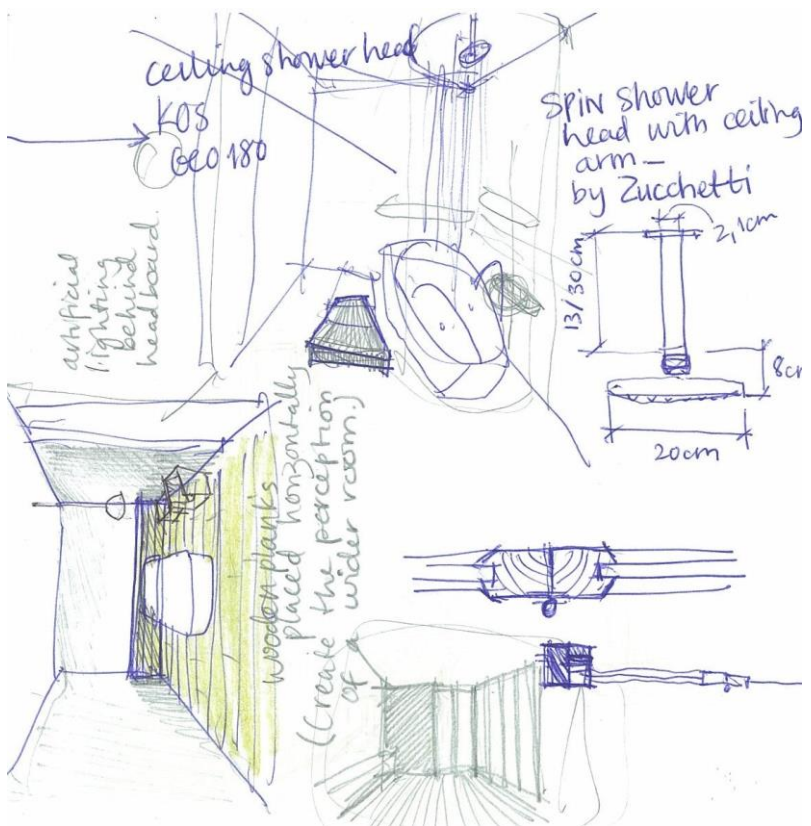 ceiling shower head
KOS
GEO 180
SPIN shower
head with ceiling
arm –
by Zucchetti
2,1cm
13/30cm
8cm
20cm
artificial
lighting
behind
headboard.
wooden planks
placed horizontally
(Create the perception
of wider room.)